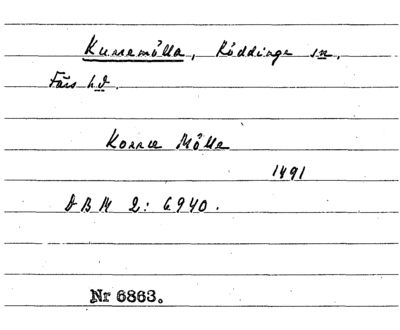 Kurremölla, Röddinge sn.
Färs hd.
Korræ Mölle
1491
DBM 2: 6940.
Nr 6863.